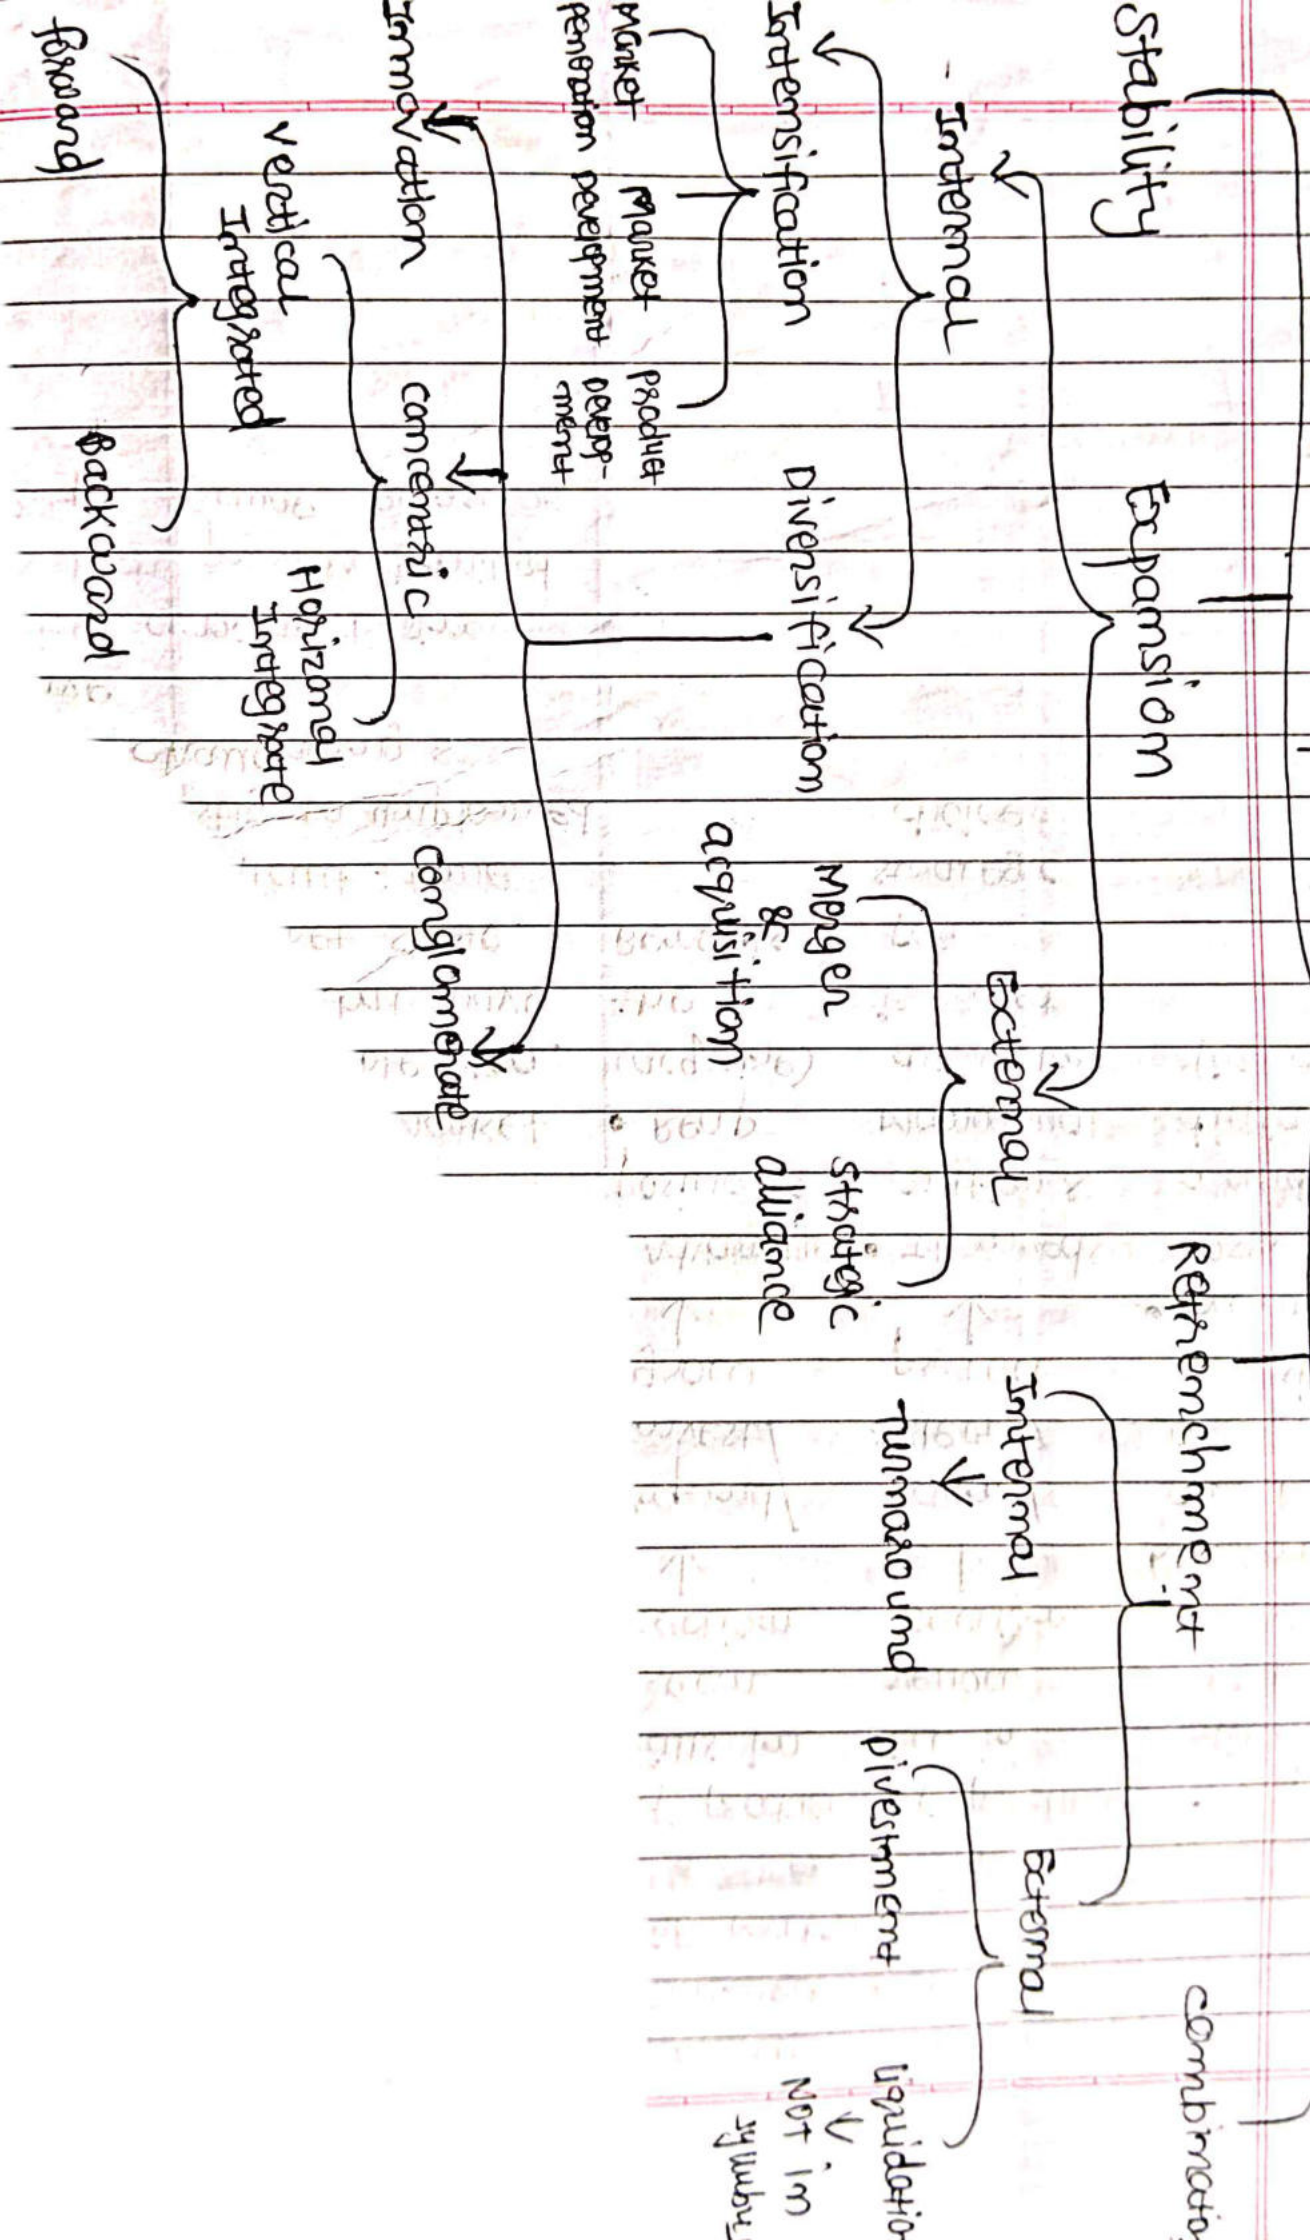 Stability
Expansion
Retrenchment
- Internal
External
Internal
External
Intensification
Diversification
Merger
&
acquisition
Strategic
alliance
Turnaround
Divestment
Not in
Market
penetration
Market
Development
Product
Develop-
ment
Innovation
Concentric
Conglomerate
Vertical
Integrated
Horizontal
Integrate
forward
Backward